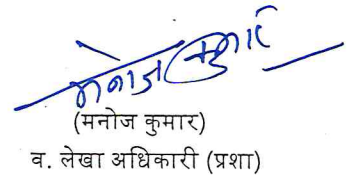 मनोज कुमार
(मनोज कुमार)
व. लेखा अधिकारी (प्रशा)